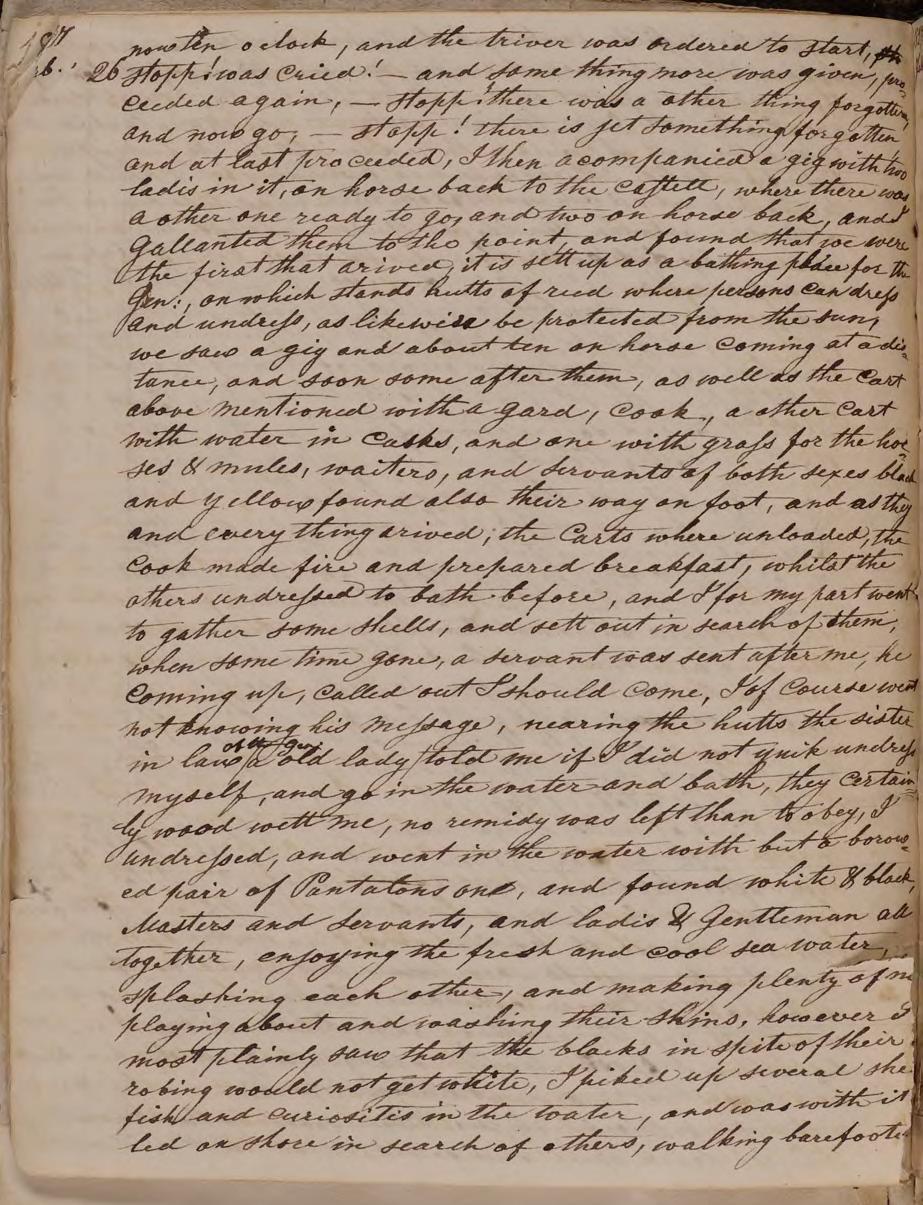 now ten o clock, and the triver was ordered to start,
26 Stopp! was cried! — and some thing more was given, pro=
ceeded again, — stopp! there was a other thing forgotten,
and now go, — stopp! there is jet something forgotten
and at last proceeded, I then acompanied a gig with two
ladis in it, on horse back to the castell, where there was
a other one ready to go, and two on horse back, and I
Gallanted them to the point, and found that we were
the first that arived, it is sett up as a bathing place for the
Gen:, on which stands hutts of reed where persons can dress
and undress, as likewise be protected from the sun,
we saw a gig and about ten on horse coming at a dis=
tance, and soon some after them, as well as the Cart
above mentioned with a gard, Cook, a other Cart
with water in Casks, and one with grass for the hor=
ses & mules, waiters, and servants of both sexes black
and yellow found also their way on foot, and as they
and every thing arived, the Carts where unloaded, the
Cook made fire and prepared breakfast, whilst the
others undressed to bath before, and I for my part went
to gather some shells, and sett out in search of them,
when some time gone, a servant was sent after me, he
Coming up, called out I should come, I of Course went
not knowing his message, nearing the hutts the sister
in law of the Gen: (a old lady) told me if I did not quik undress
myself, and go in the water and bath, they certain=
ly wood wett me, no remidy was left than to obey, I
undressed, and went in the water with but a borow=
ed pair of Pantalons one, and found white & black,
Masters and Servants, and ladis & Gentleman all
together, enjoying the fresh and cool sea water,
splashing each other, and making plenty of
playing about and washing their skins, however I
most plainly saw that the blacks in spite of their
robing would not get white, I piked up several
fish and curiositis in the water, and was with it
led on shore in search of others, walking barefooted